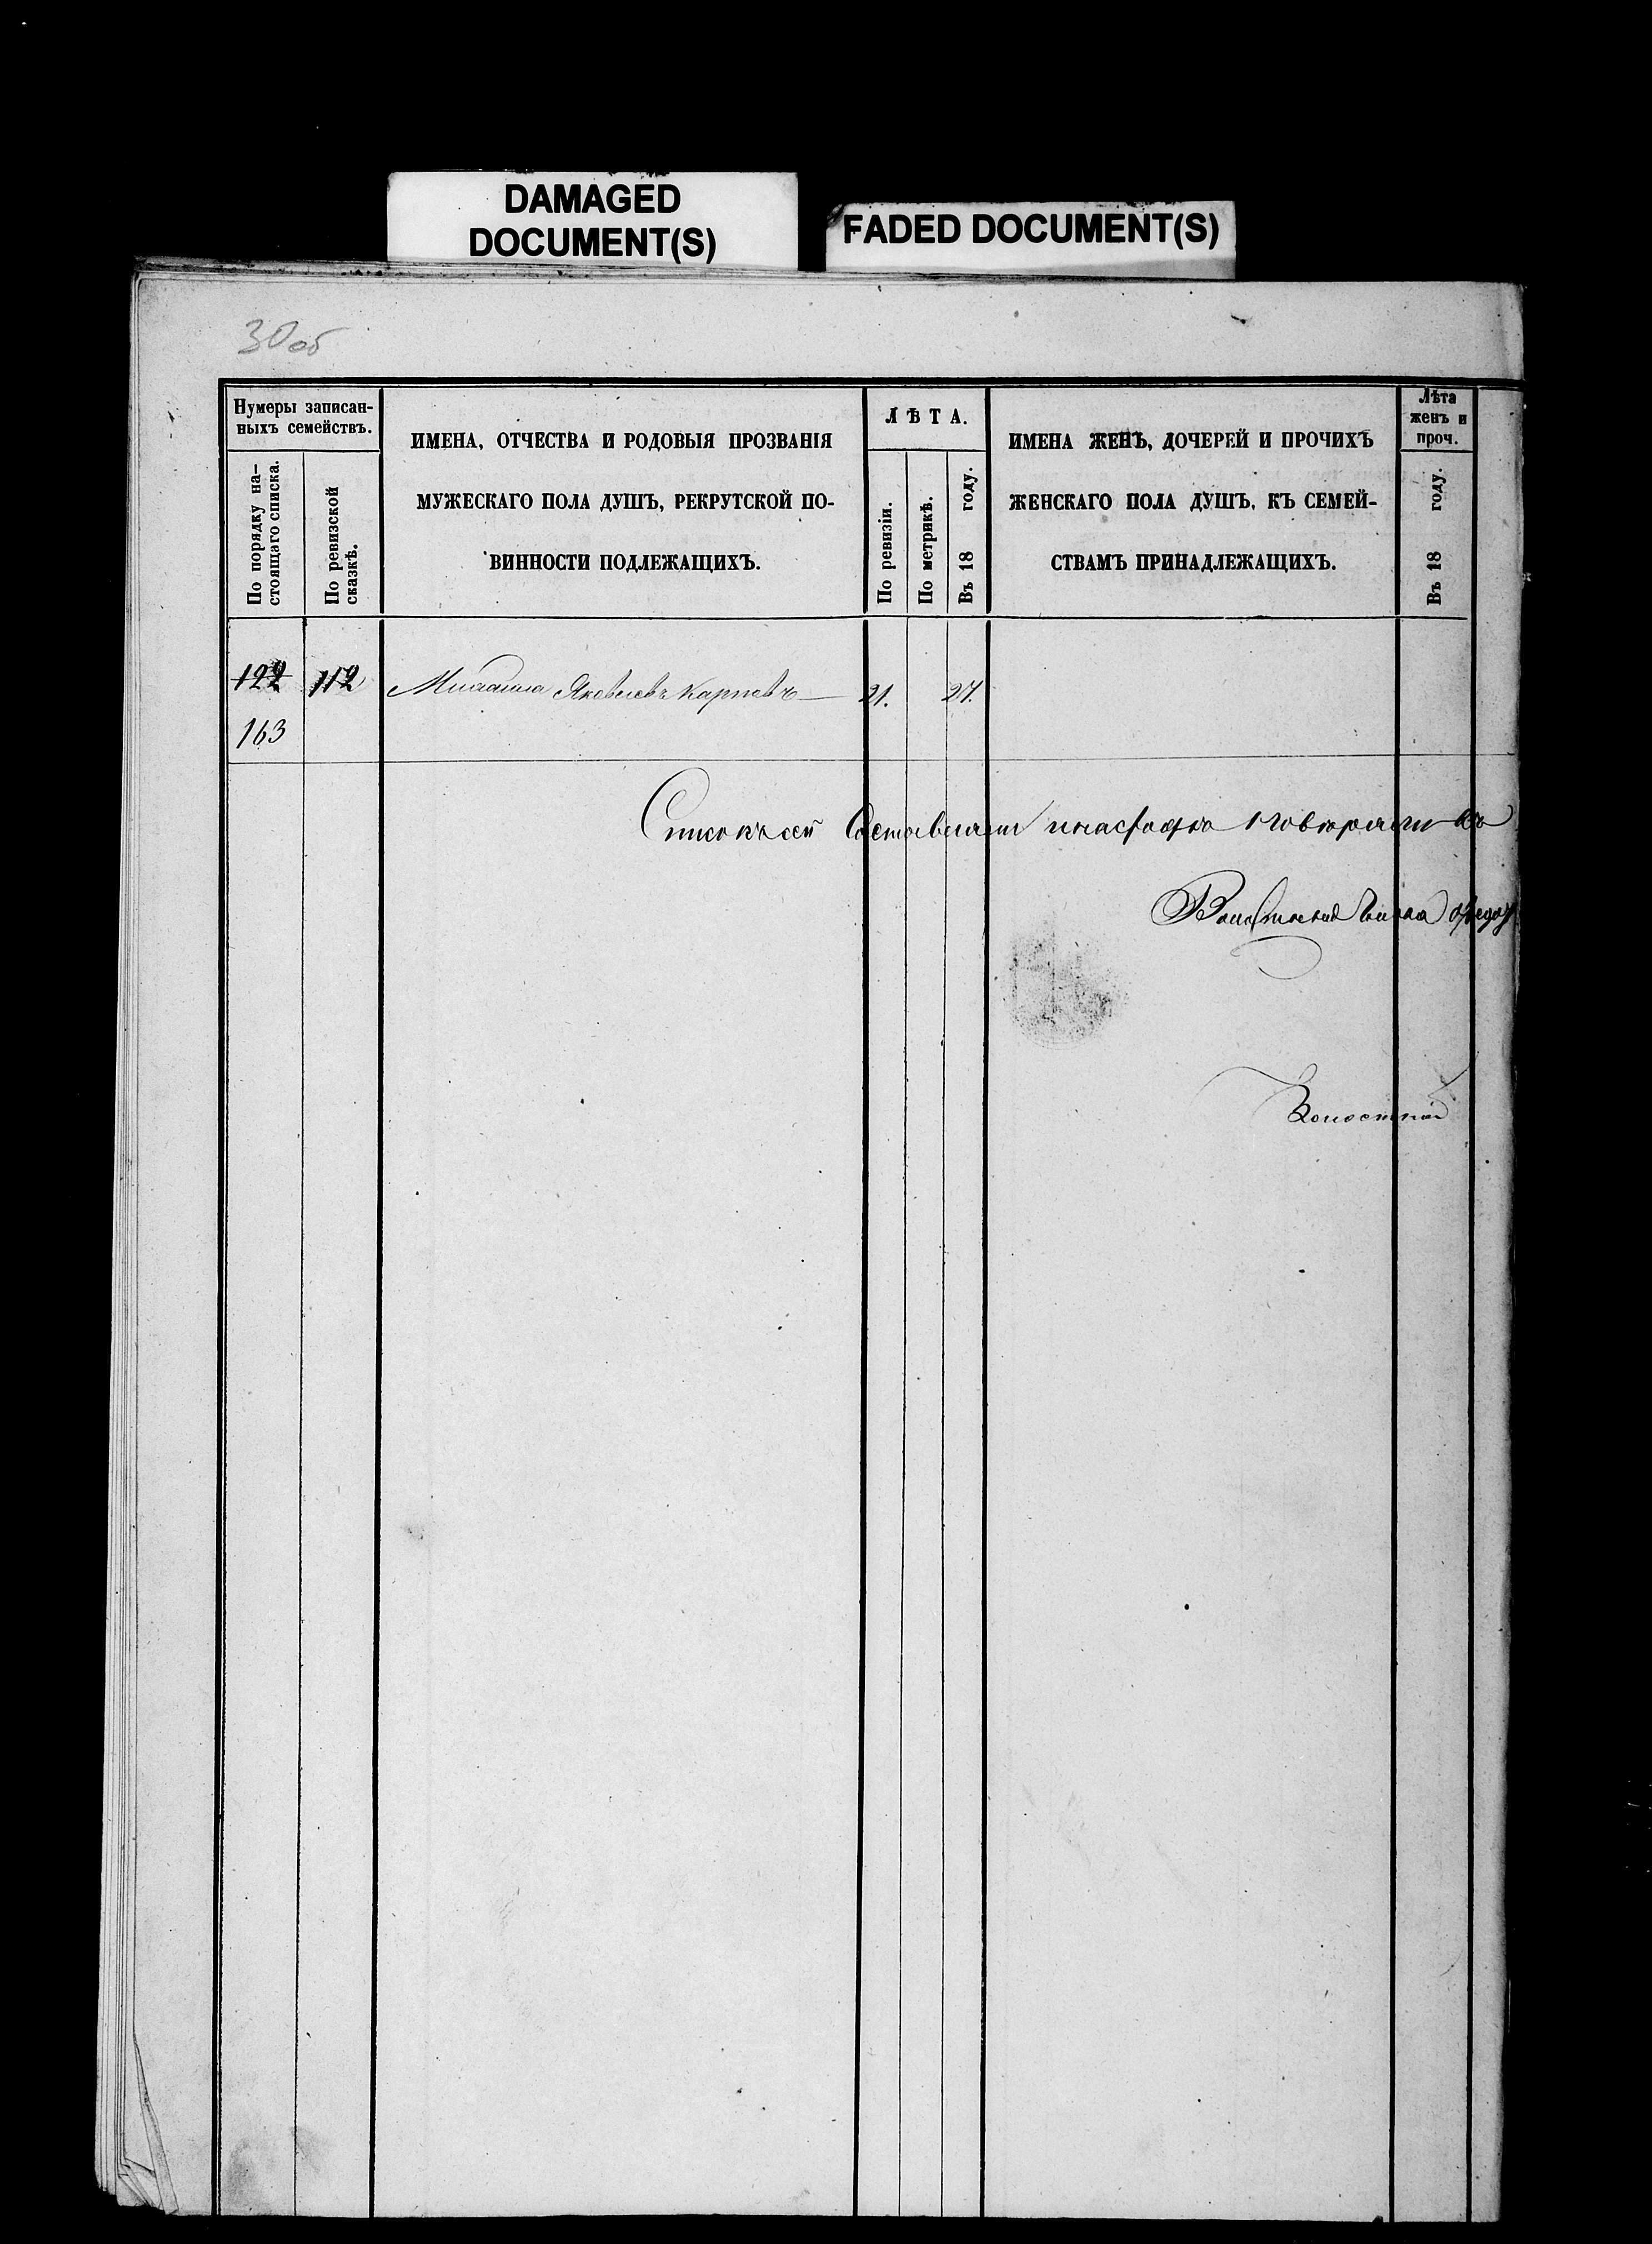 DAMAGED
DOCUMENT(S)
FADED DOCUMENT(S)
30об
Нумеры записан-
ныхъ семействъ.
По порядку на-
стоящаго списка.
По ревизской
сказкѣ.
ИМЕНА, ОТЧЕСТВА И РОДОВЫЯ ПРОЗВАНІЯ
МУЖЕСКАГО ПОЛА ДУШЪ, РЕКРУТСКОЙ ПО-
ВИННОСТИ ПОДЛЕЖАЩИХЪ.
ЛѢТА.
По ревизіи.
По метрикѣ.
Въ 18 году.
ИМЕНА ЖЕНЪ, ДОЧЕРЕЙ И ПРОЧИХЪ
ЖЕНСКАГО ПОЛА ДУШЪ, КЪ СЕМЕЙ-
СТВАМЪ ПРИНАДЛЕЖАЩИХЪ.
Лѣта
женъ и
проч.
Въ 18 году.
122 112 Михаила Яковлевъ Карповъ 21. 27.
163
Списокъ сей составляли
Волостной